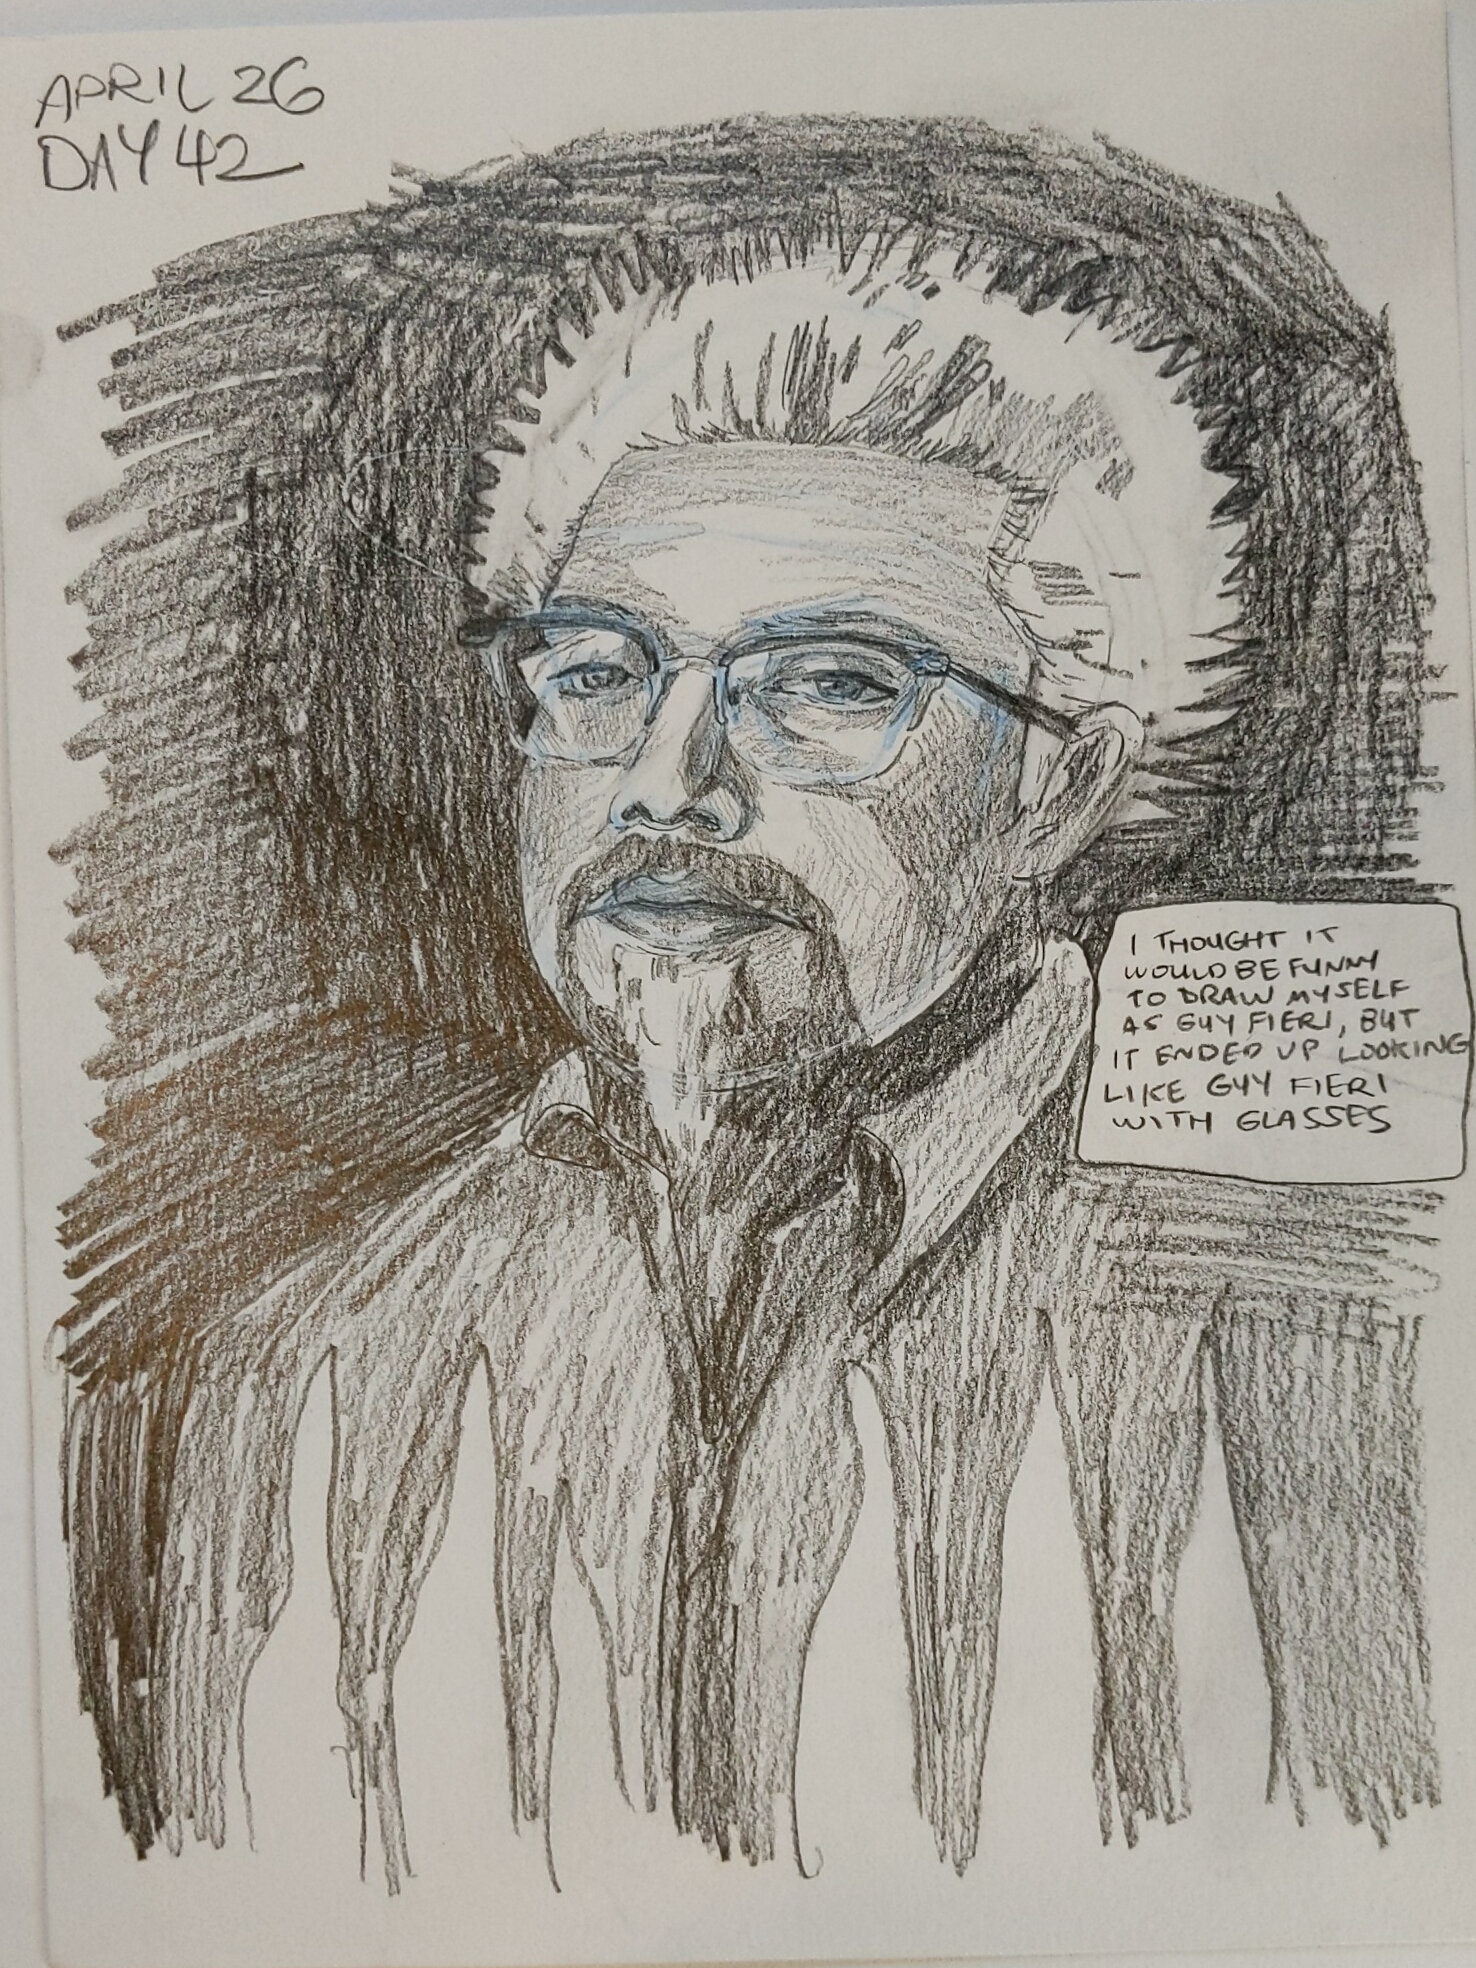 APRIL 26
DAY 42
I THOUGHT IT
WOULD BE FUNNY
TO DRAW MYSELF
AS GUY FIERI, BUT
IT ENDED UP LOOKING
LIKE GUY FIERI
WITH GLASSES